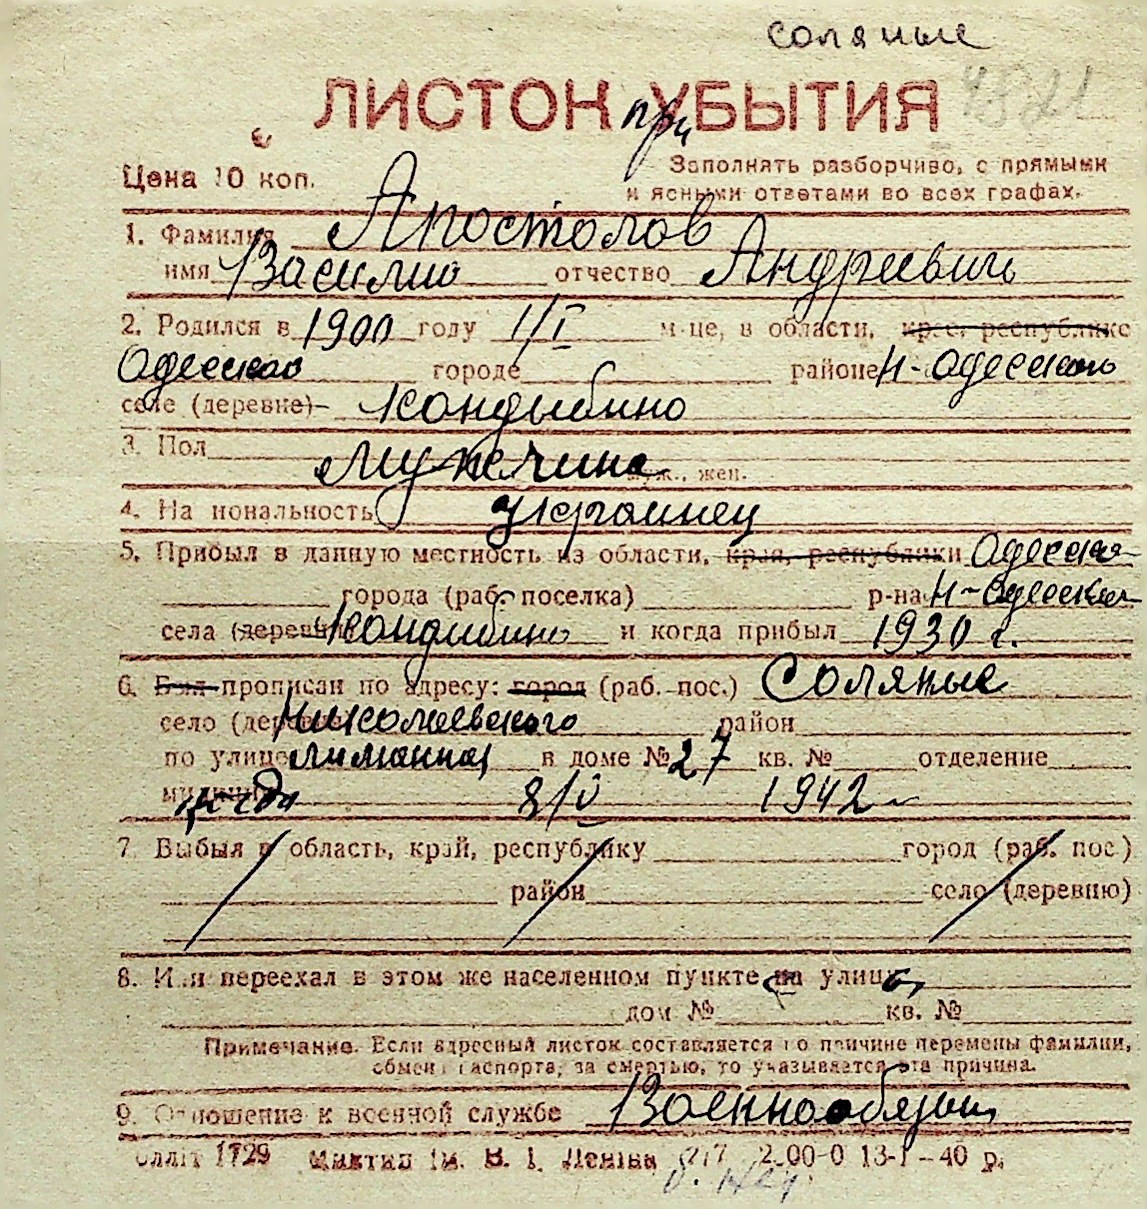 соляные
ЛИСТОК при УБЫТИЯ
Цена 10 коп.
Заполнять разборчиво, с прямыми
и ясными ответами во всех графах.
1. Фамилия Апостолов
имя Василий отчество Андреевич
2. Родился в 1900 году 1/I м-це, в области, края, республике
Одесской городе районе Н-Одесского
селе (деревне) Кондыбино
3. Пол Мужчина муж., жен.
4. Национальность украинец
5. Прибыл в данную местность из области, края, республики Одесская
города (раб. поселка) р-на Н-Одесская
села (деревни) Кондыбино и когда прибыл 1930 г.
6. Был прописан по адресу: город (раб. пос.) Соляные
село (дерев Николаевского район
по улице Лиманная в доме № 27 кв. № отделение
милиции 8/V 1942
7. Выбыл в область, край, республику город (раб. пос.)
район село (деревню)
8. Или переехал в этом же населенном пункте на улицу
дом № кв. №
Примечание. Если адресный листок составляется по причине перемены фамилии,
обмена паспорта, за смертью, то указывается эта причина.
9. Отношение к военной службе Военнообязан
Оллiт 1729 Миктип iм. В. I. Ленiна 2.00-0 13-I-40 р.